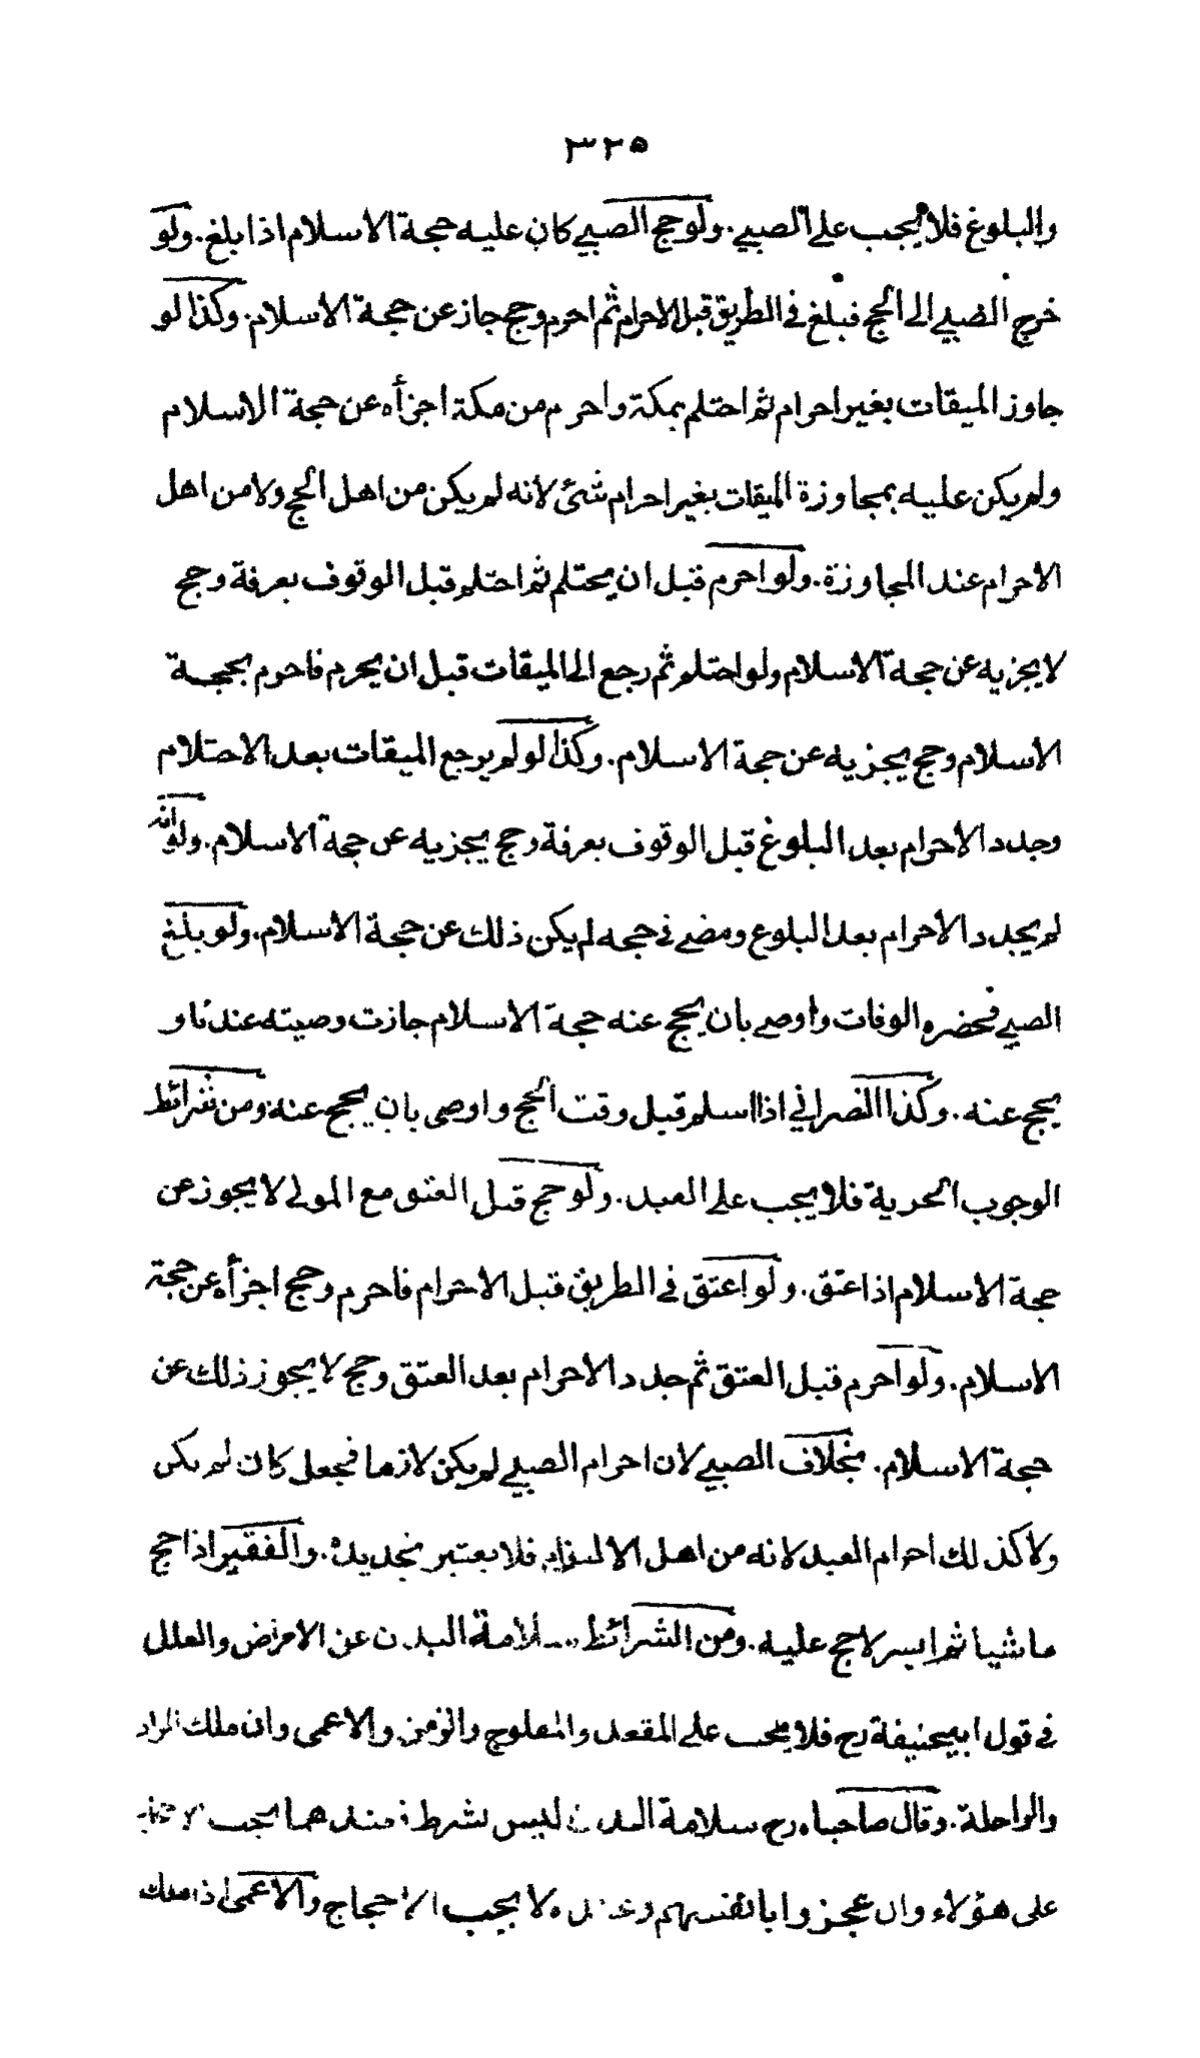 ٣٢٥
والبلوغ فلا يجب على الصبي. ولو حج الصبي كان عليه حجة الاسلام اذا بلغ. ولو
خرج الصبي الى الحج فبلغ في الطريق قبل الاحرام ثم احرم وحج جاز عن حجة الاسلام. وكذا لو
جاوز الميقات بغير احرام ثم احتلم بمكة واحرم من مكة اجزأه عن حجة الاسلام
ولم يكن عليه بمجاوزة الميقات بغير احرام شئ لانه لم يكن من اهل الحج ولا من اهل
الاحرام عند المجاوزة. ولو احرم قبل ان يحتلم ثم احتلم قبل الوقوف بعرفة وحج
لا يجزيه عن حجة الاسلام ولو احتلم ثم رجع الى الميقات قبل ان يحرم فاحرم بحجة
الاسلام وحج يجزيه عن حجة الاسلام. وكذا لو لم يرجع الميقات بعد الاحتلام
وجدد الاحرام بعد البلوغ قبل الوقوف بعرفة وحج يجزيه عن حجة الاسلام. ولو انه
لم يجدد الاحرام بعد البلوغ ومضى في حجه لم يكن ذلك عن حجة الاسلام. ولو بلغ
الصبي فحضره الوفات واوصى بان يحج عنه حجة الاسلام جازت وصيته عندنا و
يحج عنه. وكذا النصراني اذا اسلم قبل وقت الحج واوصى بان يحج عنه ومن شرائط
الوجوب الحرية فلا يجب على العبد. ولو حج قبل العتق مع المولى لا يجوز عن
حجة الاسلام اذا عتق. ولو اعتق في الطريق قبل الاحرام فاحرم وحج اجزأه عن حجة
الاسلام. ولو احرم قبل العتق ثم جدد الاحرام بعد العتق وحج لا يجوز ذلك عن
حجة الاسلام. بخلاف الصبي لان احرام الصبي لم يكن لازما فجعل كان لم يكن
ولا كذلك احرام العبد لانه من اهل الالتزام فلا يعتبر تجديده. والفقير اذا حج
ماشيا ثم ايسر لا حج عليه. ومن الشرائط سلامة البدن عن الامراض والعلل
في قول ابيحنيفة رح فلا يجب على المقعد والمفلوج والزمن والاعمى وان ملك الزاد
والراحلة. وقال صاحباه رح سلامة البدن ليس بشرط فعندهما يجب الاحجاج
على هؤلاء وان عجزوا بانفسهم وعنده لا يجب الاحجاج والاعمى اذا ملك